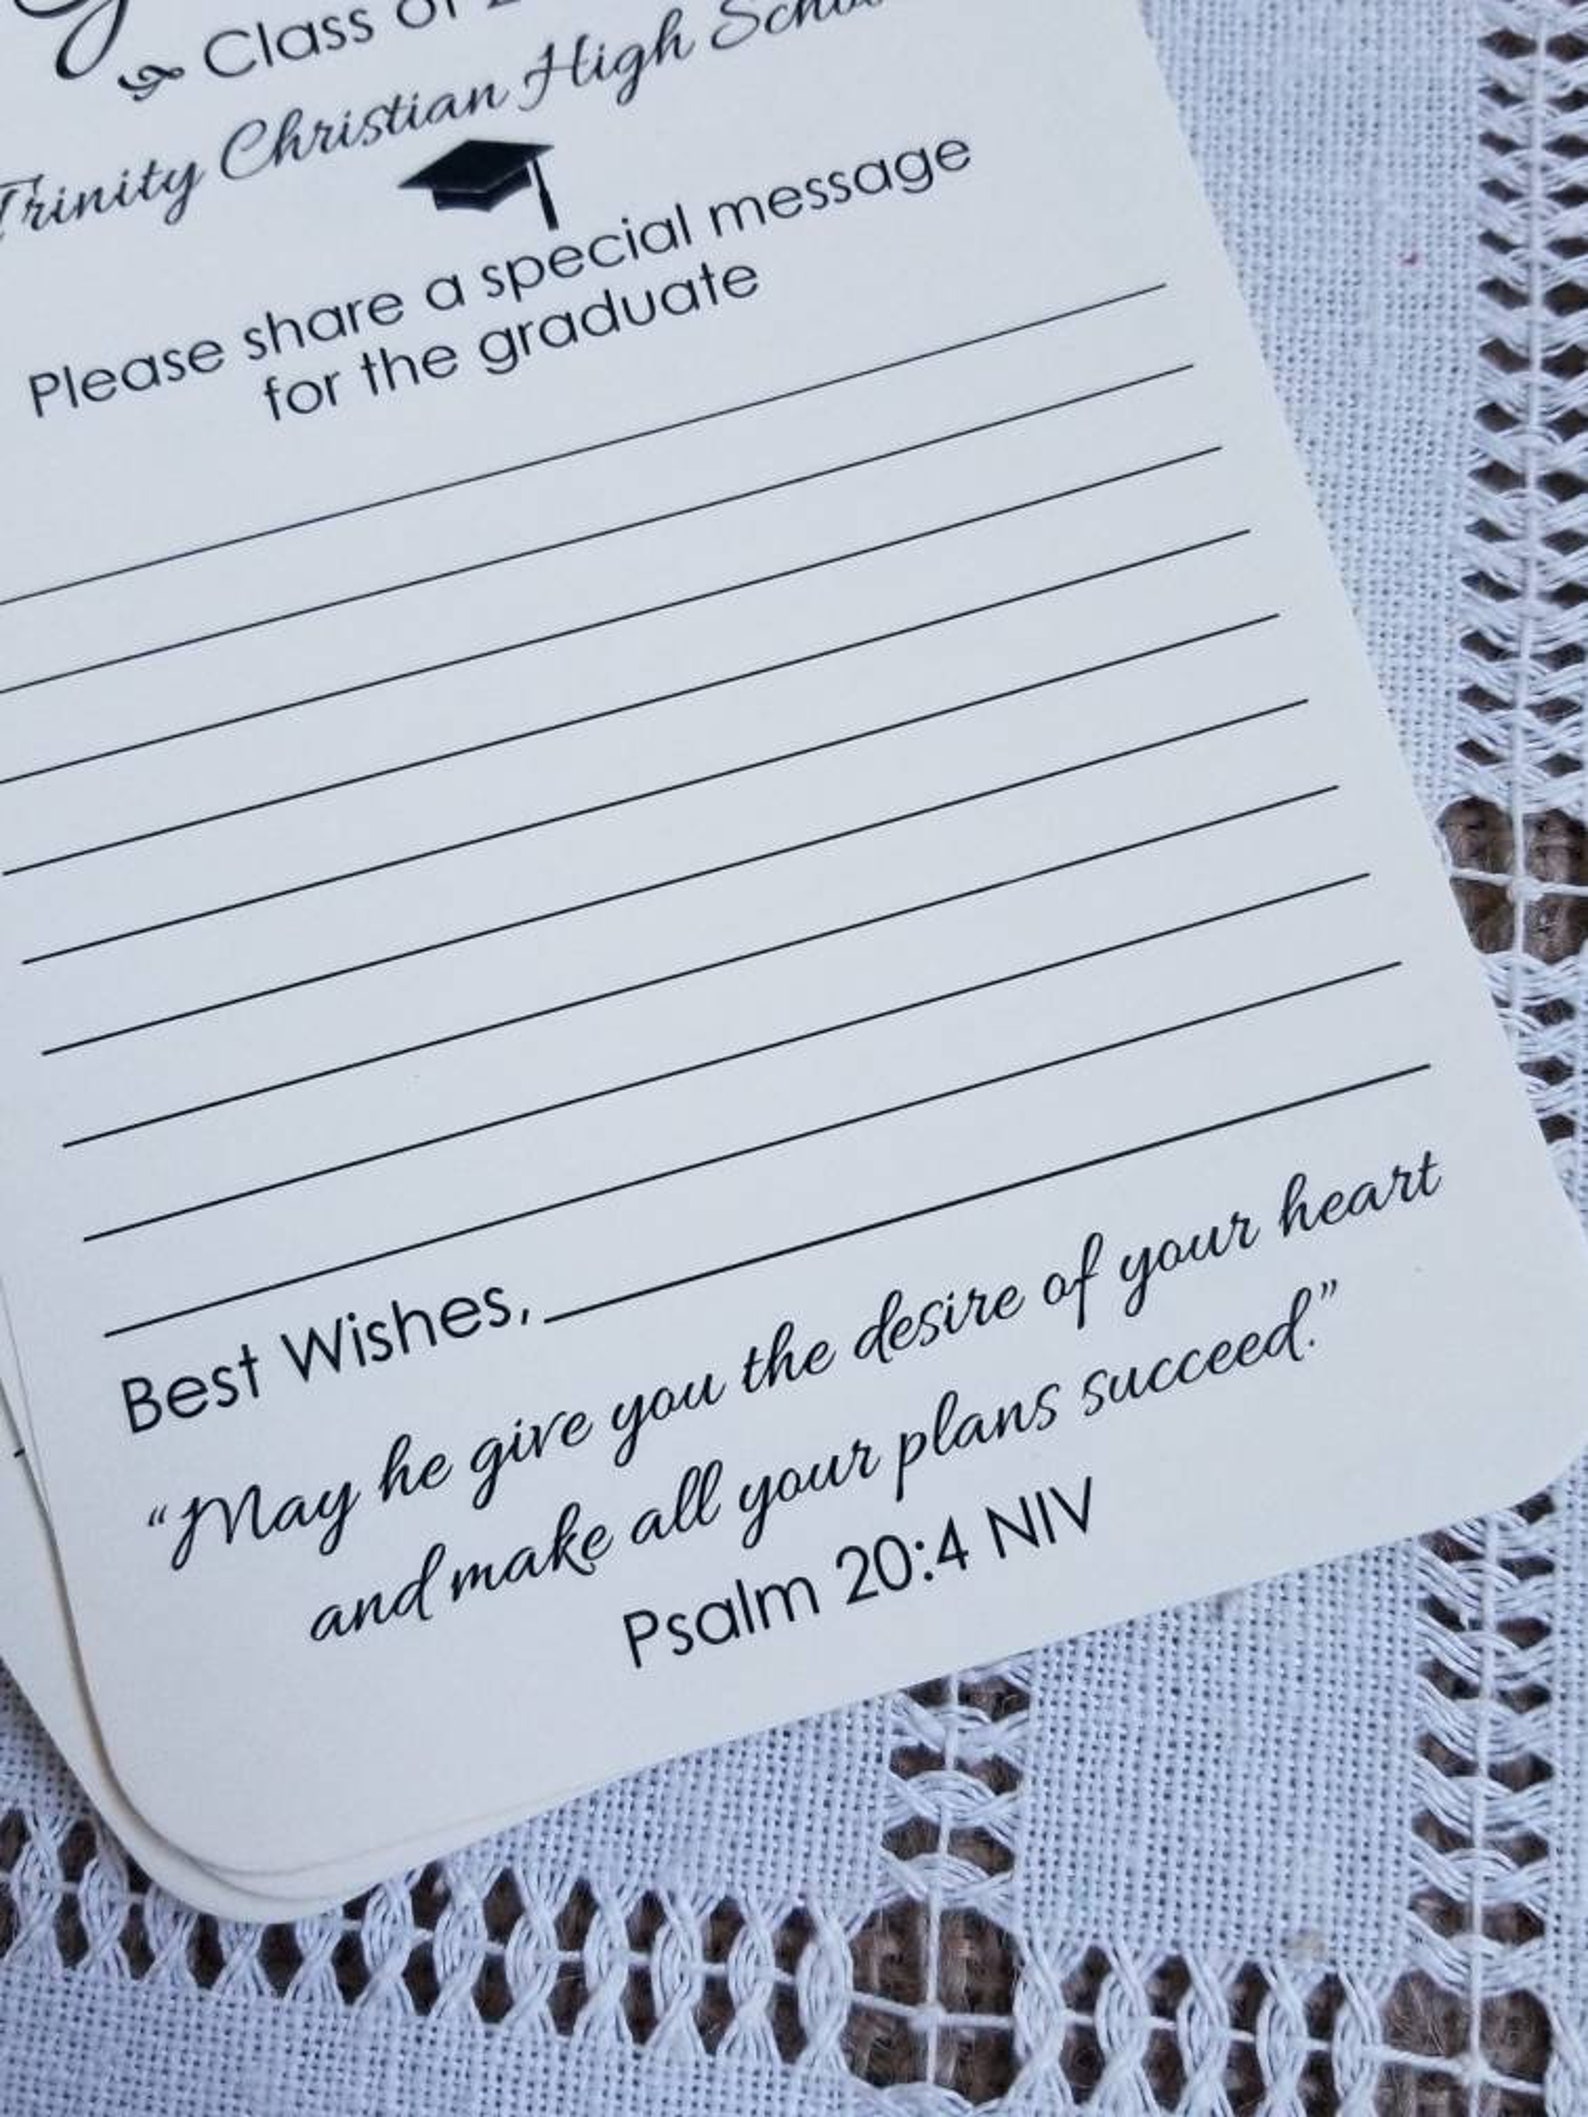 Class of
Trinity Christian High School
Please share a special message
for the graduate
Best Wishes,
“May he give you the desire of your heart
and make all your plans succeed.”
Psalm 20:4 NIV